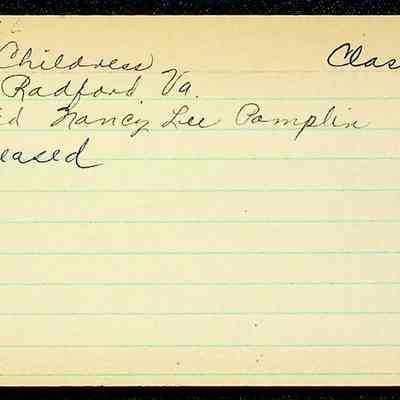 Childress Clas
Radford Va.
ed Nancy Lee Pamplin
eased